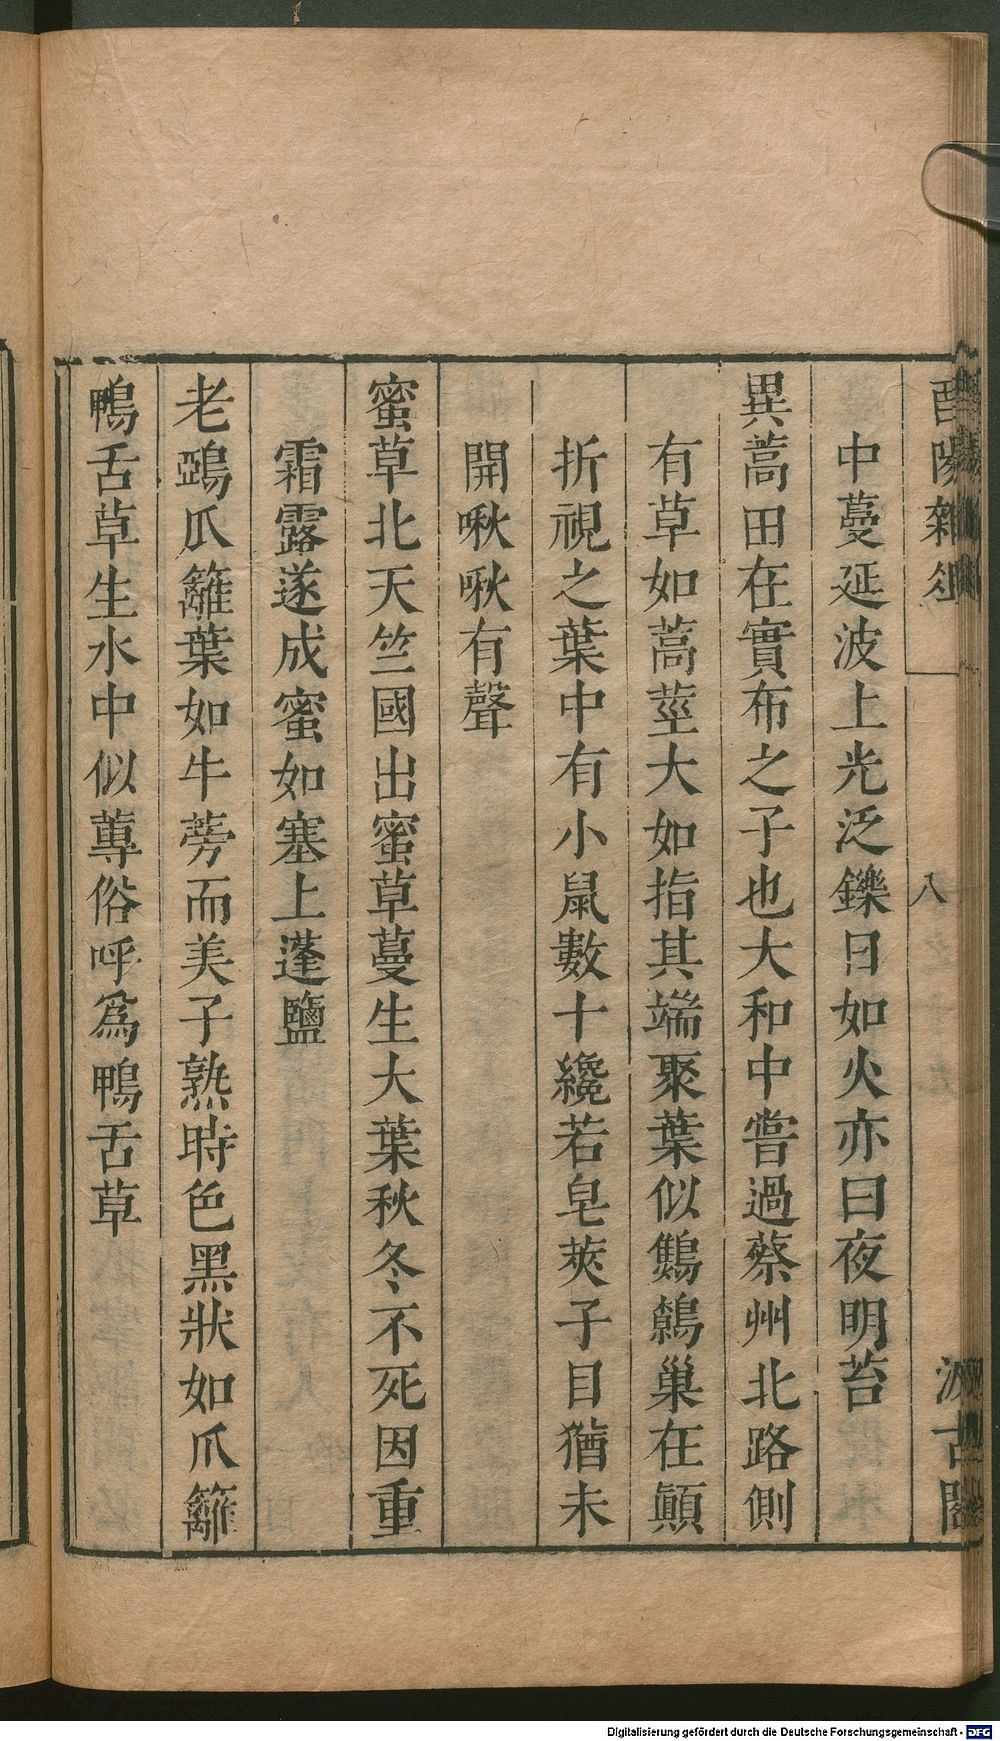 酉陽雜俎
八
汲古閣
中蔓延波上光泛鑠日如火亦曰夜明苔
異蒿田在實布之子也大和中嘗過蔡州北路側
有草如蒿莖大如指其端聚葉似鷦鷯巢在顚
折視之葉中有小鼠數十纔若皂莢子目猶未
開啾啾有聲
蜜草北天竺國出蜜草蔓生大葉秋冬不死因重
霜露遂成蜜如塞上蓬鹽
老鵶爪籬葉如牛蒡而美子熟時色黑狀如爪籬
鴨舌草生水中似蓴俗呼爲鴨舌草
Digitalisierung gefördert durch die Deutsche Forschungsgemeinschaft - DFG